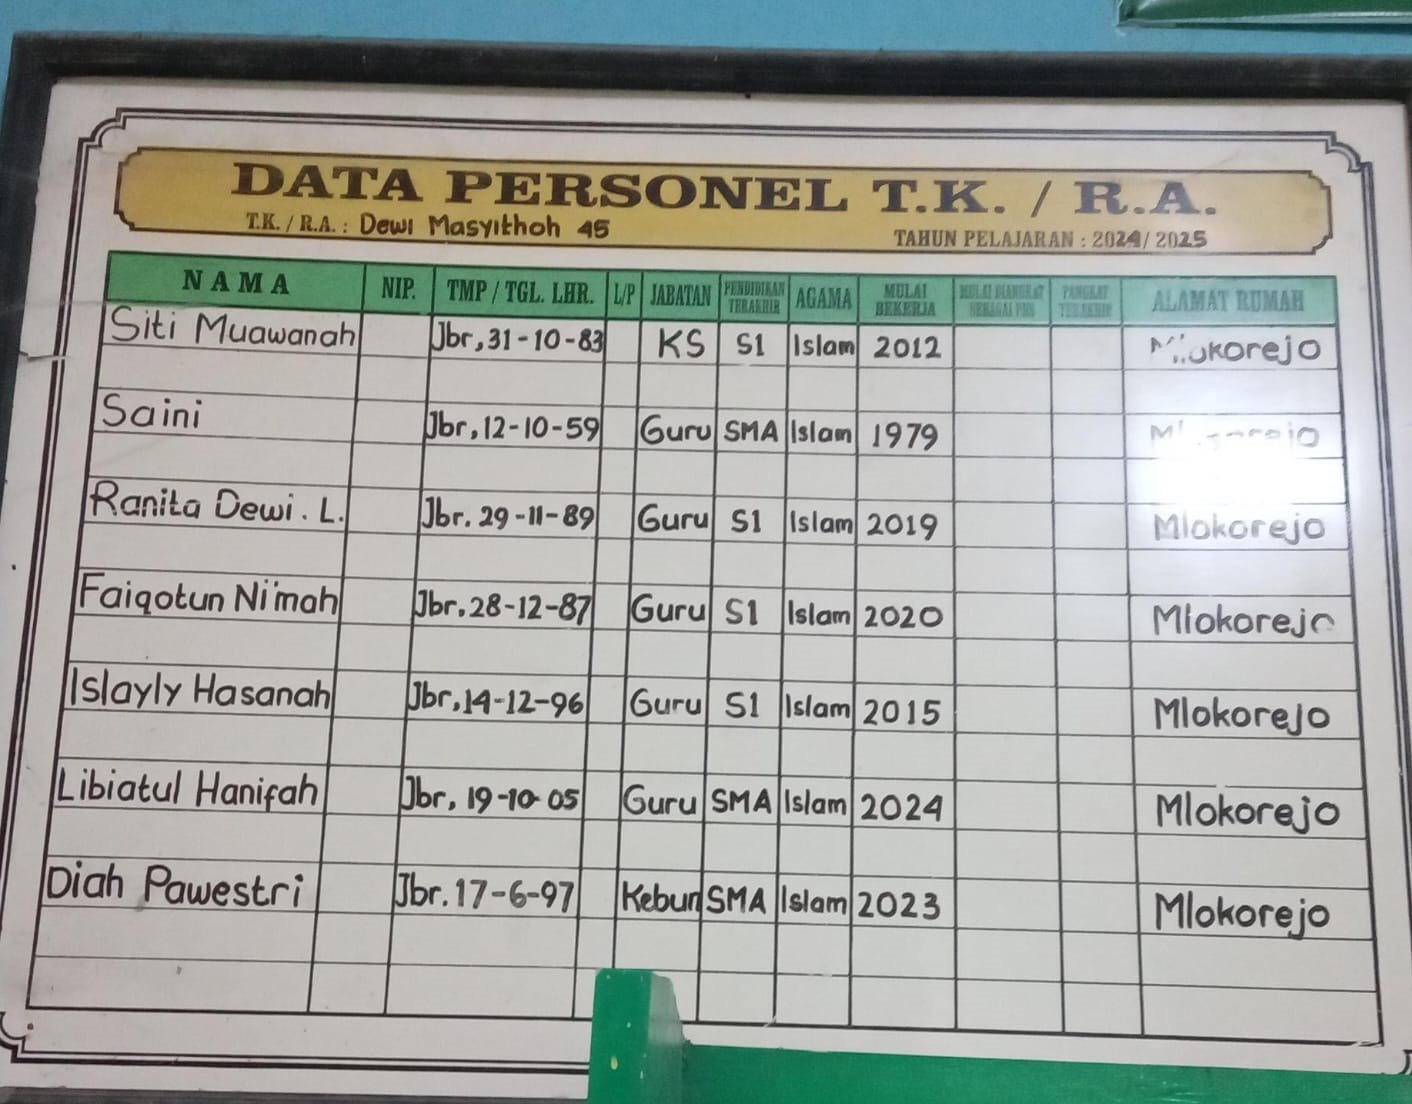 DATA PERSONEL T.K. / R.A.
T.K. / R.A. : Dewi Masyithoh 45
TAHUN PELAJARAN : 2024/2025
NAMA NIP. TMP / TGL. LHR. L/P JABATAN PENDIDIKAN TERAKHIR AGAMA MULAI BEKERJA MULAI DIANGKAT SEBAGAI PNS PANGKAT TERAKHIR ALAMAT RUMAH
Siti Muawanah Jbr, 31-10-83 KS S1 Islam 2012 Mlokorejo
Saini Jbr, 12-10-59 Guru SMA Islam 1979
Ranita Dewi. L. Jbr. 29-11-89 Guru S1 Islam 2019 Mlokorejo
Faiqotun Ni'mah Jbr. 28-12-87 Guru S1 Islam 2020 Mlokorejo
Islayly Hasanah Jbr, 14-12-96 Guru S1 Islam 2015 Mlokorejo
Libiatul Hanifah Jbr, 19-10-05 Guru SMA Islam 2024 Mlokorejo
Diah Pawestri Jbr. 17-6-97 Kebun SMA Islam 2023 Mlokorejo